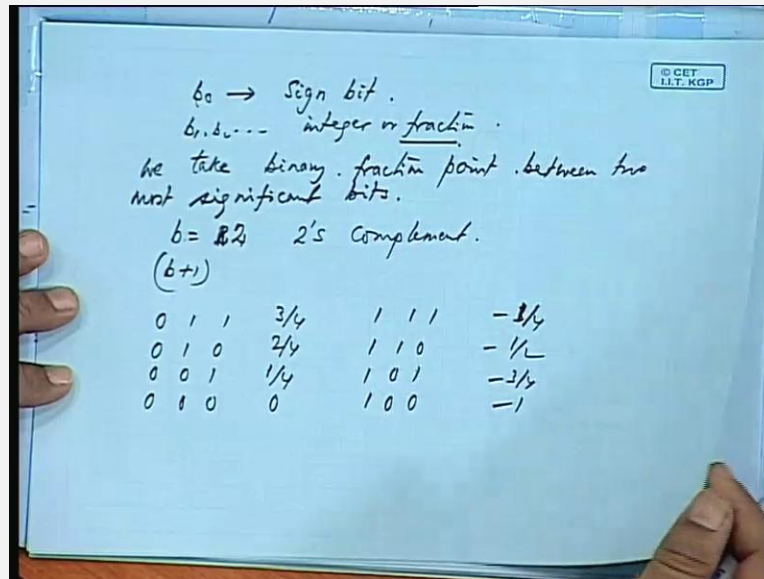 © CET
I.I.T. KGP
b₀ → Sign bit.
b₁, b₂ ... integer or fraction.
We take binary. fraction point. between two
most significant bits.
b = 2 2's complement.
(b+1)
0 1 1 3/4 1 1 1 - 1/4
0 1 0 2/4 1 1 0 - 1/2
0 0 1 1/4 1 0 1 - 3/4
0 0 0 0 1 0 0 - 1